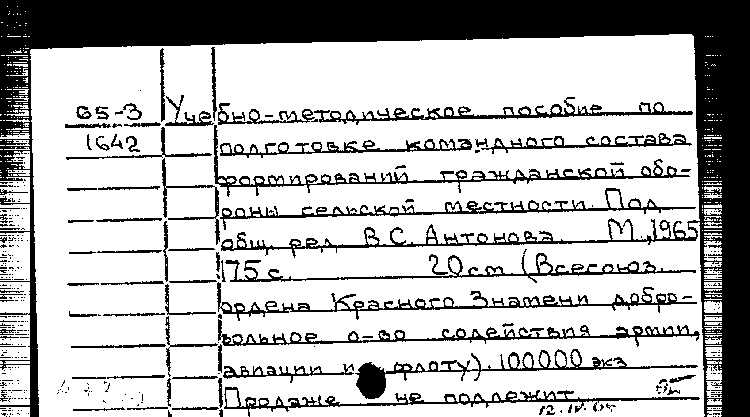 65-3 Учебно-методическое пособие по
1642 подготовке командного состава
формирований гражданской обо-
роны сельской местности. Под
общ. ред. В.С. Антонова. М., 1965
175 с. 20 см (Всесоюз.
ордена Красного Знамени добро-
вольное о-во содействия армии,
авиации и флоту). 100000 экз
Продаже не подлежит.